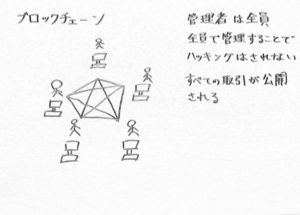 ブロックチェーン
管理者は全員
全員で管理することで
ハッキングはされない
すべての取引が公開
される